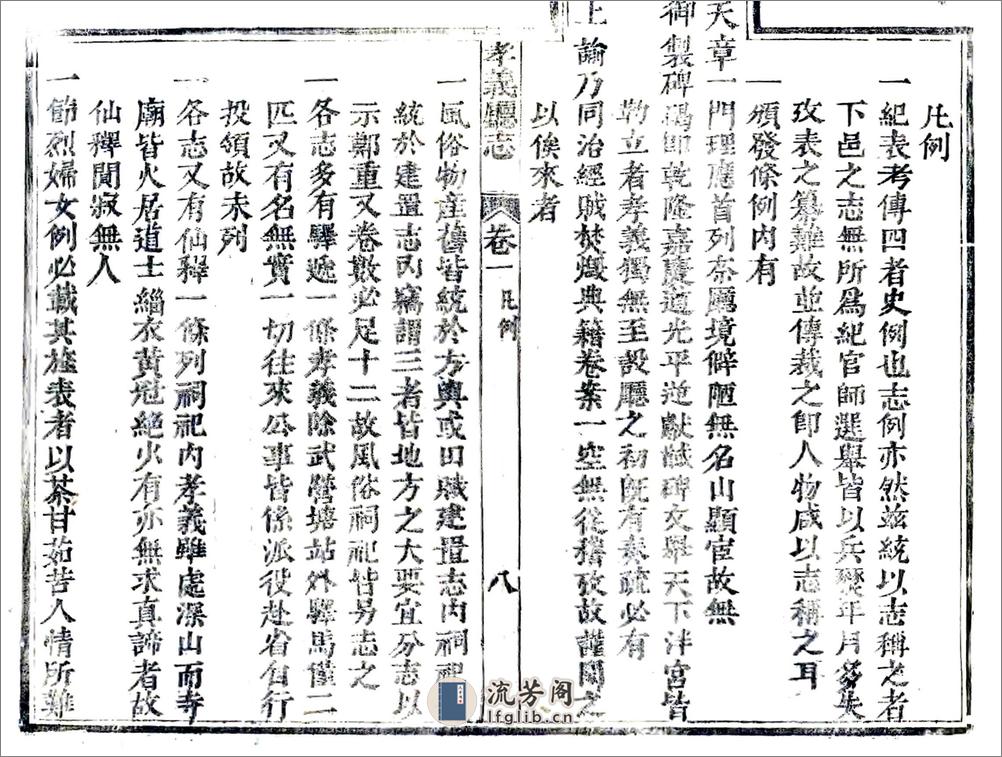 凡例
一紀表考傳四者史例也志例亦然茲統以志稱之者
下邑之志無所爲紀官師選舉皆以兵燹年月多失
攷表之纂難故並傳裁之卽人物咸以志稱之耳
一頒發條例內有
天章一門理應首列奈厲境僻陋無名山顯宦故無
御製碑碣卽乾隆嘉慶道光平逆獻馘碑文舉天下泮宮皆
勒立者孝義獨無至設廳之初旣有奏疏必有
上諭乃同治經賊焚燬典籍卷案一空無從稽攷故謹闕之
以俟來者
孝義廳志 卷一 凡例 八
一風俗物產舊皆統於方輿或田賦建置志內祠祀
統於建置志內竊謂三者皆地方之大要宜分志以
示鄭重又卷數必足十二故風俗祠祀皆另志之
一各志多有驛遞一條孝義除武營塘站外驛馬僅二
匹又有名無實一切往來公事皆係派役赴省自行
投領故未列
一各志又有仙釋一條列祠祀內孝義雖處深山而寺
廟皆火居道士緇衣黃冠絕火有亦無求真諦者故
仙釋閒寂無人
一節烈婦女例必載其旌表者以茶甘茹苦人情所難
流芳阁
lfglib.cn